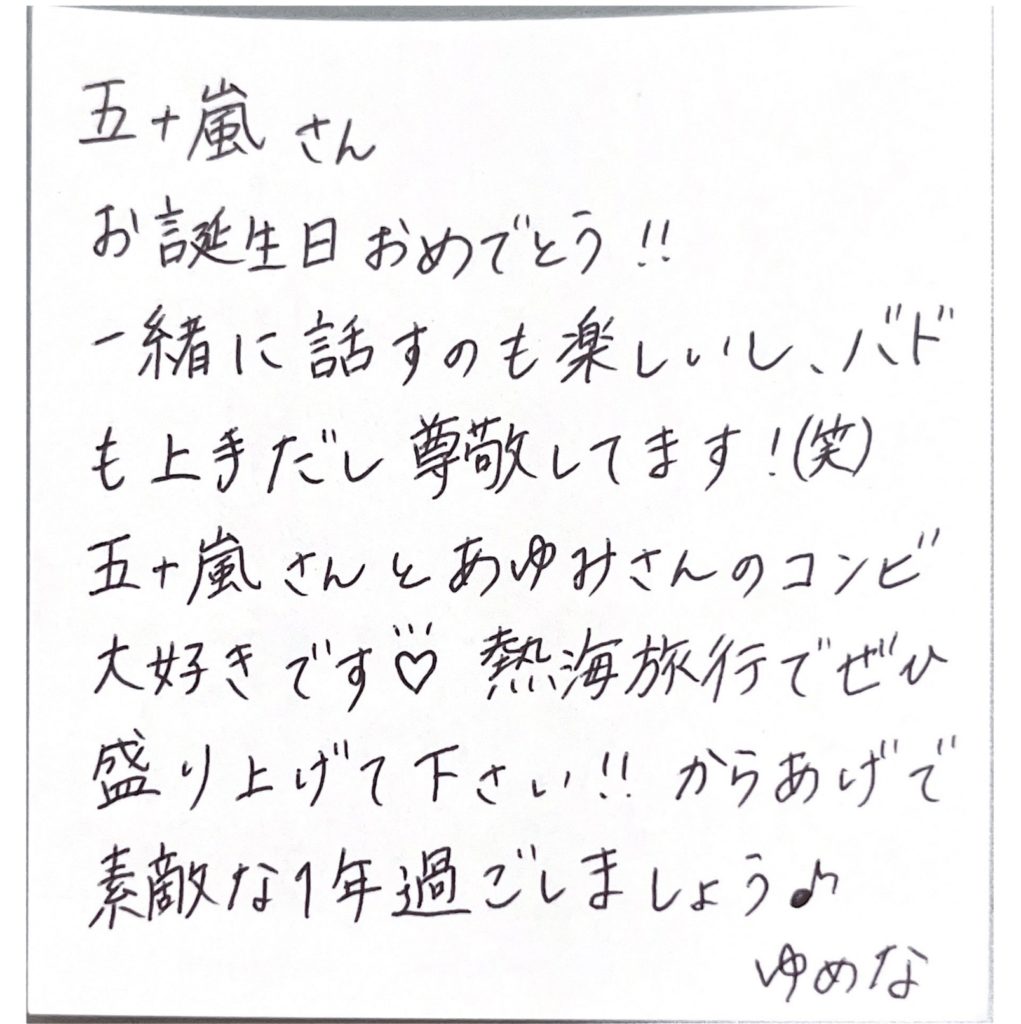 五十嵐さん
お誕生日おめでとう!!
一緒に話すのも楽しいし、バド
も上手だし尊敬してます!(笑)
五十嵐さんとあゆみさんのコンビ
大好きです♡ 熱海旅行でぜひ
盛り上げて下さい!! からあげで
素敵な1年過ごしましょう♪
ゆめな